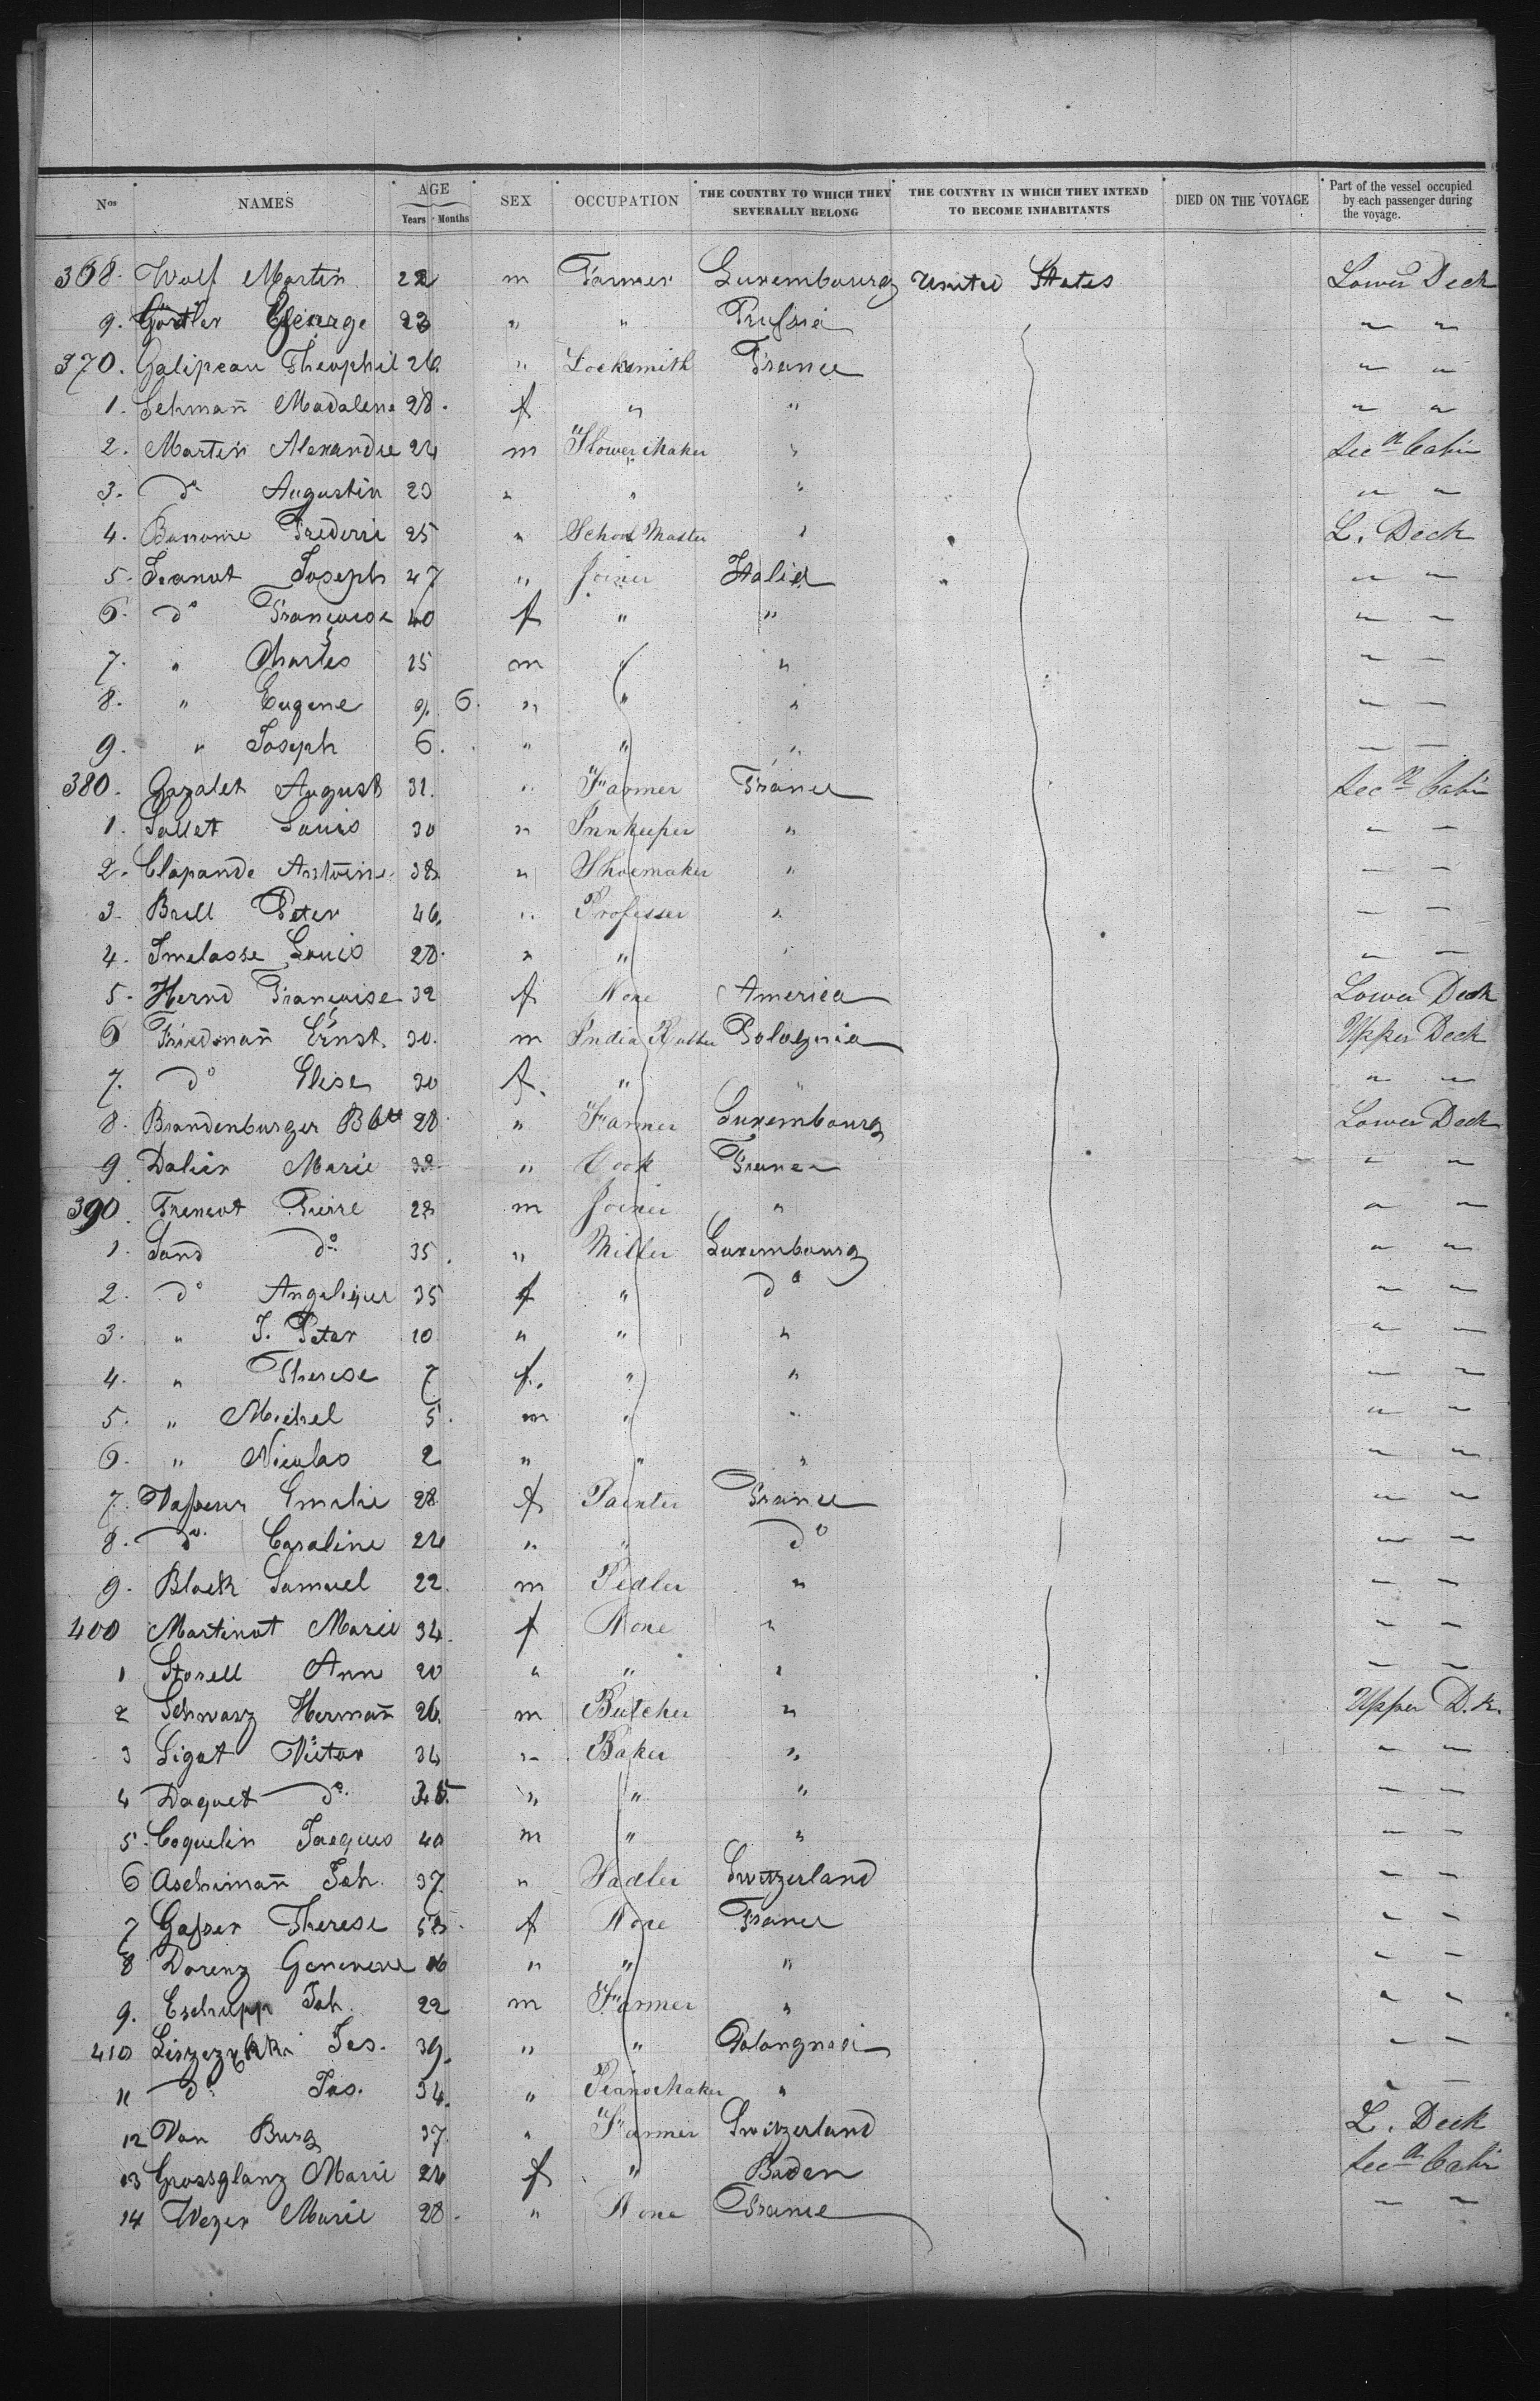 Nos NAMES AGE Years Months SEX OCCUPATION THE COUNTRY TO WHICH THEY SEVERALLY BELONG THE COUNTRY IN WHICH THEY INTEND TO BECOME INHABITANTS DIED ON THE VOYAGE Part of the vessel occupied by each passenger during the voyage.
368. Wolf Martin 22 m Farmer Luxembourg United States Lower Deck
9. George 23 " " Prussia " "
370. Galipeau Theophil 26 " Locksmith France " "
1. Lehman̄ Madalena 28. f " " " "
2. Martin Alexandre 24 m Flower Maker " Secd Cabin
3. do Augustin 23 " " " " "
4. Frederri 25 " School Master " L. Deck
5. Jeanot Joseph 47 " Joiner Italia " "
6. do Françoise 40 f " " " "
7. " Charles 15 m " " " "
8. " Eugene 9. 6. " " " " "
9. " Joseph 6. " " " " "
380. Gazalet August 31. " Farmer France Secd Cabin
1. Sallet Louis 30 " Innkeeper " " "
2. Clapande Antoine 38 " Shoemaker " " "
3. Brill Peter 46. " Professer " " "
4. Imelasse Louis 28. " " " " "
5. Hernd Françoise 32 f None America Lower Deck
6 Friedman̄ Ernst. 30. m India Rubber Upper Deck
7. do Elise 30 f. " " " "
8. Brandenburger Bbte 28 " Farmer Luxembourg Lower Deck
9. Dalier Marie 38 " Cook France " "
390. Tremot Pierre 28 m Joiner " " "
1. Sand do 35. " Miller Luxembourg " "
2. do Angelique 35 f " do " "
3. " J. Peter 10 " " " " "
4. " Therese 7 f. " " " "
5. " Michel 5. m " " " "
6. " Nicolas 2 " " " " "
7. Vasseur Emelie 28. f Painter France " "
8. do Caroline 24 " " do " "
9. Block Samuel 22. m Pedler " " "
400 Martinot Marie 34. f None " " "
1 Storell Ann 20 " " " " "
2 Schwarz Herman̄ 26. m Butcher " Upper D.k.
3 Ligot Victor 34 " Baker " " "
4 Daquet do " " " " "
5. Coquelin Jacques 40 m " " " "
6 Aschiman̄ Joh. 37. " Sadler Switzerland " "
7 Gasser Therese 58. f None France " "
8 Dorenz Genevieve " " " " "
9. Eschupp Joh. 22 m Farmer " " "
410 Jos. 39. " " " "
11 do Jos. 34. " Piano Maker " " "
12 Van Burg 37. " Farmer Switzerland L. Deck
13 Grossglanz Marie 24 f " Baden Secd Cabin
14 Wezer Marie 28. " None France " "